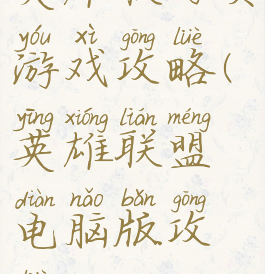 yóu xì gōng lüè
游戏攻略(
yīng xióng lián méng
英雄联盟
diàn nǎo bǎn gōng
电脑版攻